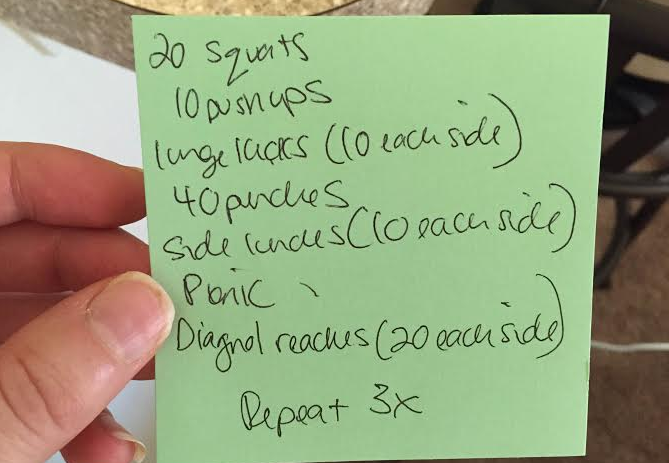 20 squats
10 pushups
lunge kicks (10 each side)
40 punches
side lunches (10 each side)
Plank
Diagnol reaches (20 each side)
Repeat 3x